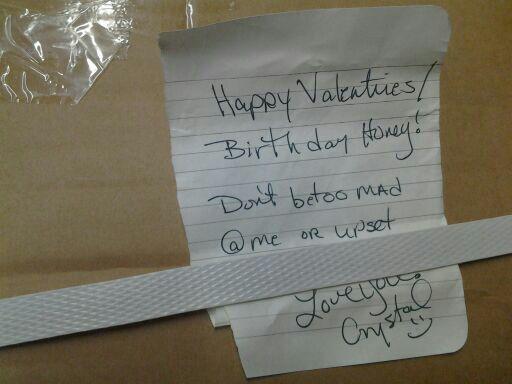 Happy Valentines/
Birthday Honey!
Don't be too MAD
@ me OR upset
Love you!
Crystal